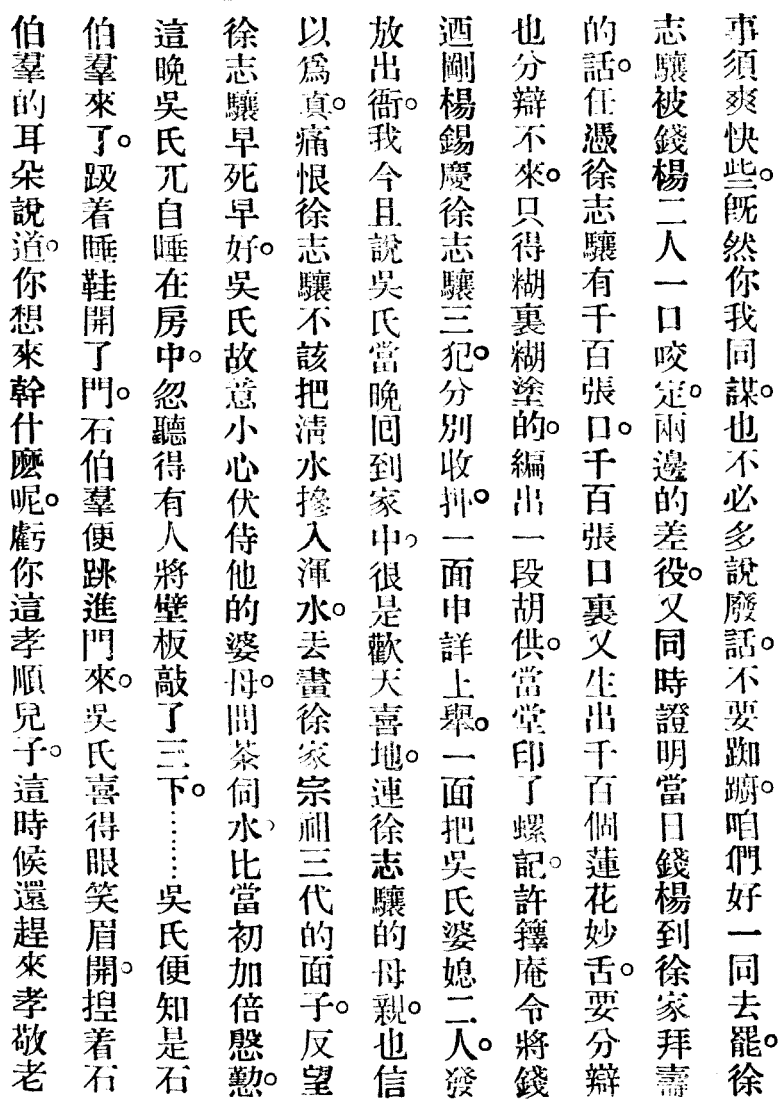 事須爽快些。旣然你我同謀。也不必多說廢話。不要踟躕。咱們好一同去罷。徐
志驤被錢楊二人一口咬定。兩邊的差役。又同時證明當日錢楊到徐家拜壽
的話。任憑徐志驤有千百張口。千百張口裏又生出千百個蓮花妙舌。要分辯
也分辯不來。只得糊裏糊塗的。編出一段胡供。當堂印了螺記。許籜庵令將錢
迺剛楊錫慶徐志驤三犯。分別收押。一面申詳上舉。一面把吳氏婆媳二人。發
放出衙。我今且說吳氏當晚回到家中。很是歡天喜地。連徐志驤的母親。也信
以爲真。痛恨徐志驤不該把淸水摻入渾水。去畫徐家宗祖三代的面子。反望
徐志驤早死早好。吳氏故意小心伏侍他的婆母。問茶伺水、比當初加倍慇懃。
這晚吳氏兀自睡在房中。忽聽得有人將壁板敲了三下。……吳氏便知是石
伯羣來了。趿着睡鞋開了門。石伯羣便跳進門來。吳氏喜得眼笑眉開。揑着石
伯羣的耳朵說道。你想來幹什麽呢。虧你這孝順兒子。這時候還趕來孝敬老